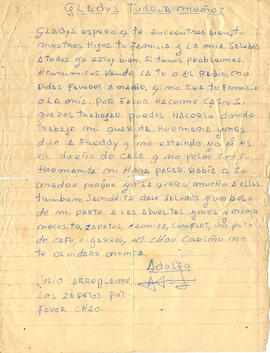 GLADYS TUDELA MUÑOZ
GLADYS ESPERO Q TE ENCUENTRES BIEN, TU
NUESTROS HIJOS TU FAMILIA Y LA MIA. SALUDOS
A TODOS YO ESTOY BIEN. SI TENES PROBLEMAS
ECONOMICOS VENDE LA TV O EL RADIO, NO
PIDAS FAVORES A NADIE, NO SEA TU FAMILIA
O LA MIA. POR FAVOR HACEME CASO. SI
QUERES TRABAJAR. PUEDES HACERLO DONDE
TRABAJA MI QUERIDA HERMANA Y NOS
DILE A FREDDY Q NO ESTANDO YO EL ES
EL DUEÑO DE CASA. Q NO PELEE CON SU
HERMANITA NI HAGA PASAR RABIA A SU
MADRE PORQUE YO LA QUIERO MUCHO A ELLOS
TAMBIEN. SANDRITA DALE SALUDOS Y UN BESO
DE MI PARTE. A LAS ABUELITAS Y NOS Y MIMA
NECESITO, ZAPATOS, CAMISA, CONFORT, UN POCO
DE CAFE, CIGARRIOS, CHAO CARIÑO NO
TE OLVIDARE NUNCA.
ADOLFO
JULIO ARREGLAME
LOS ZAPATOS POR
FAVOR CHAO.